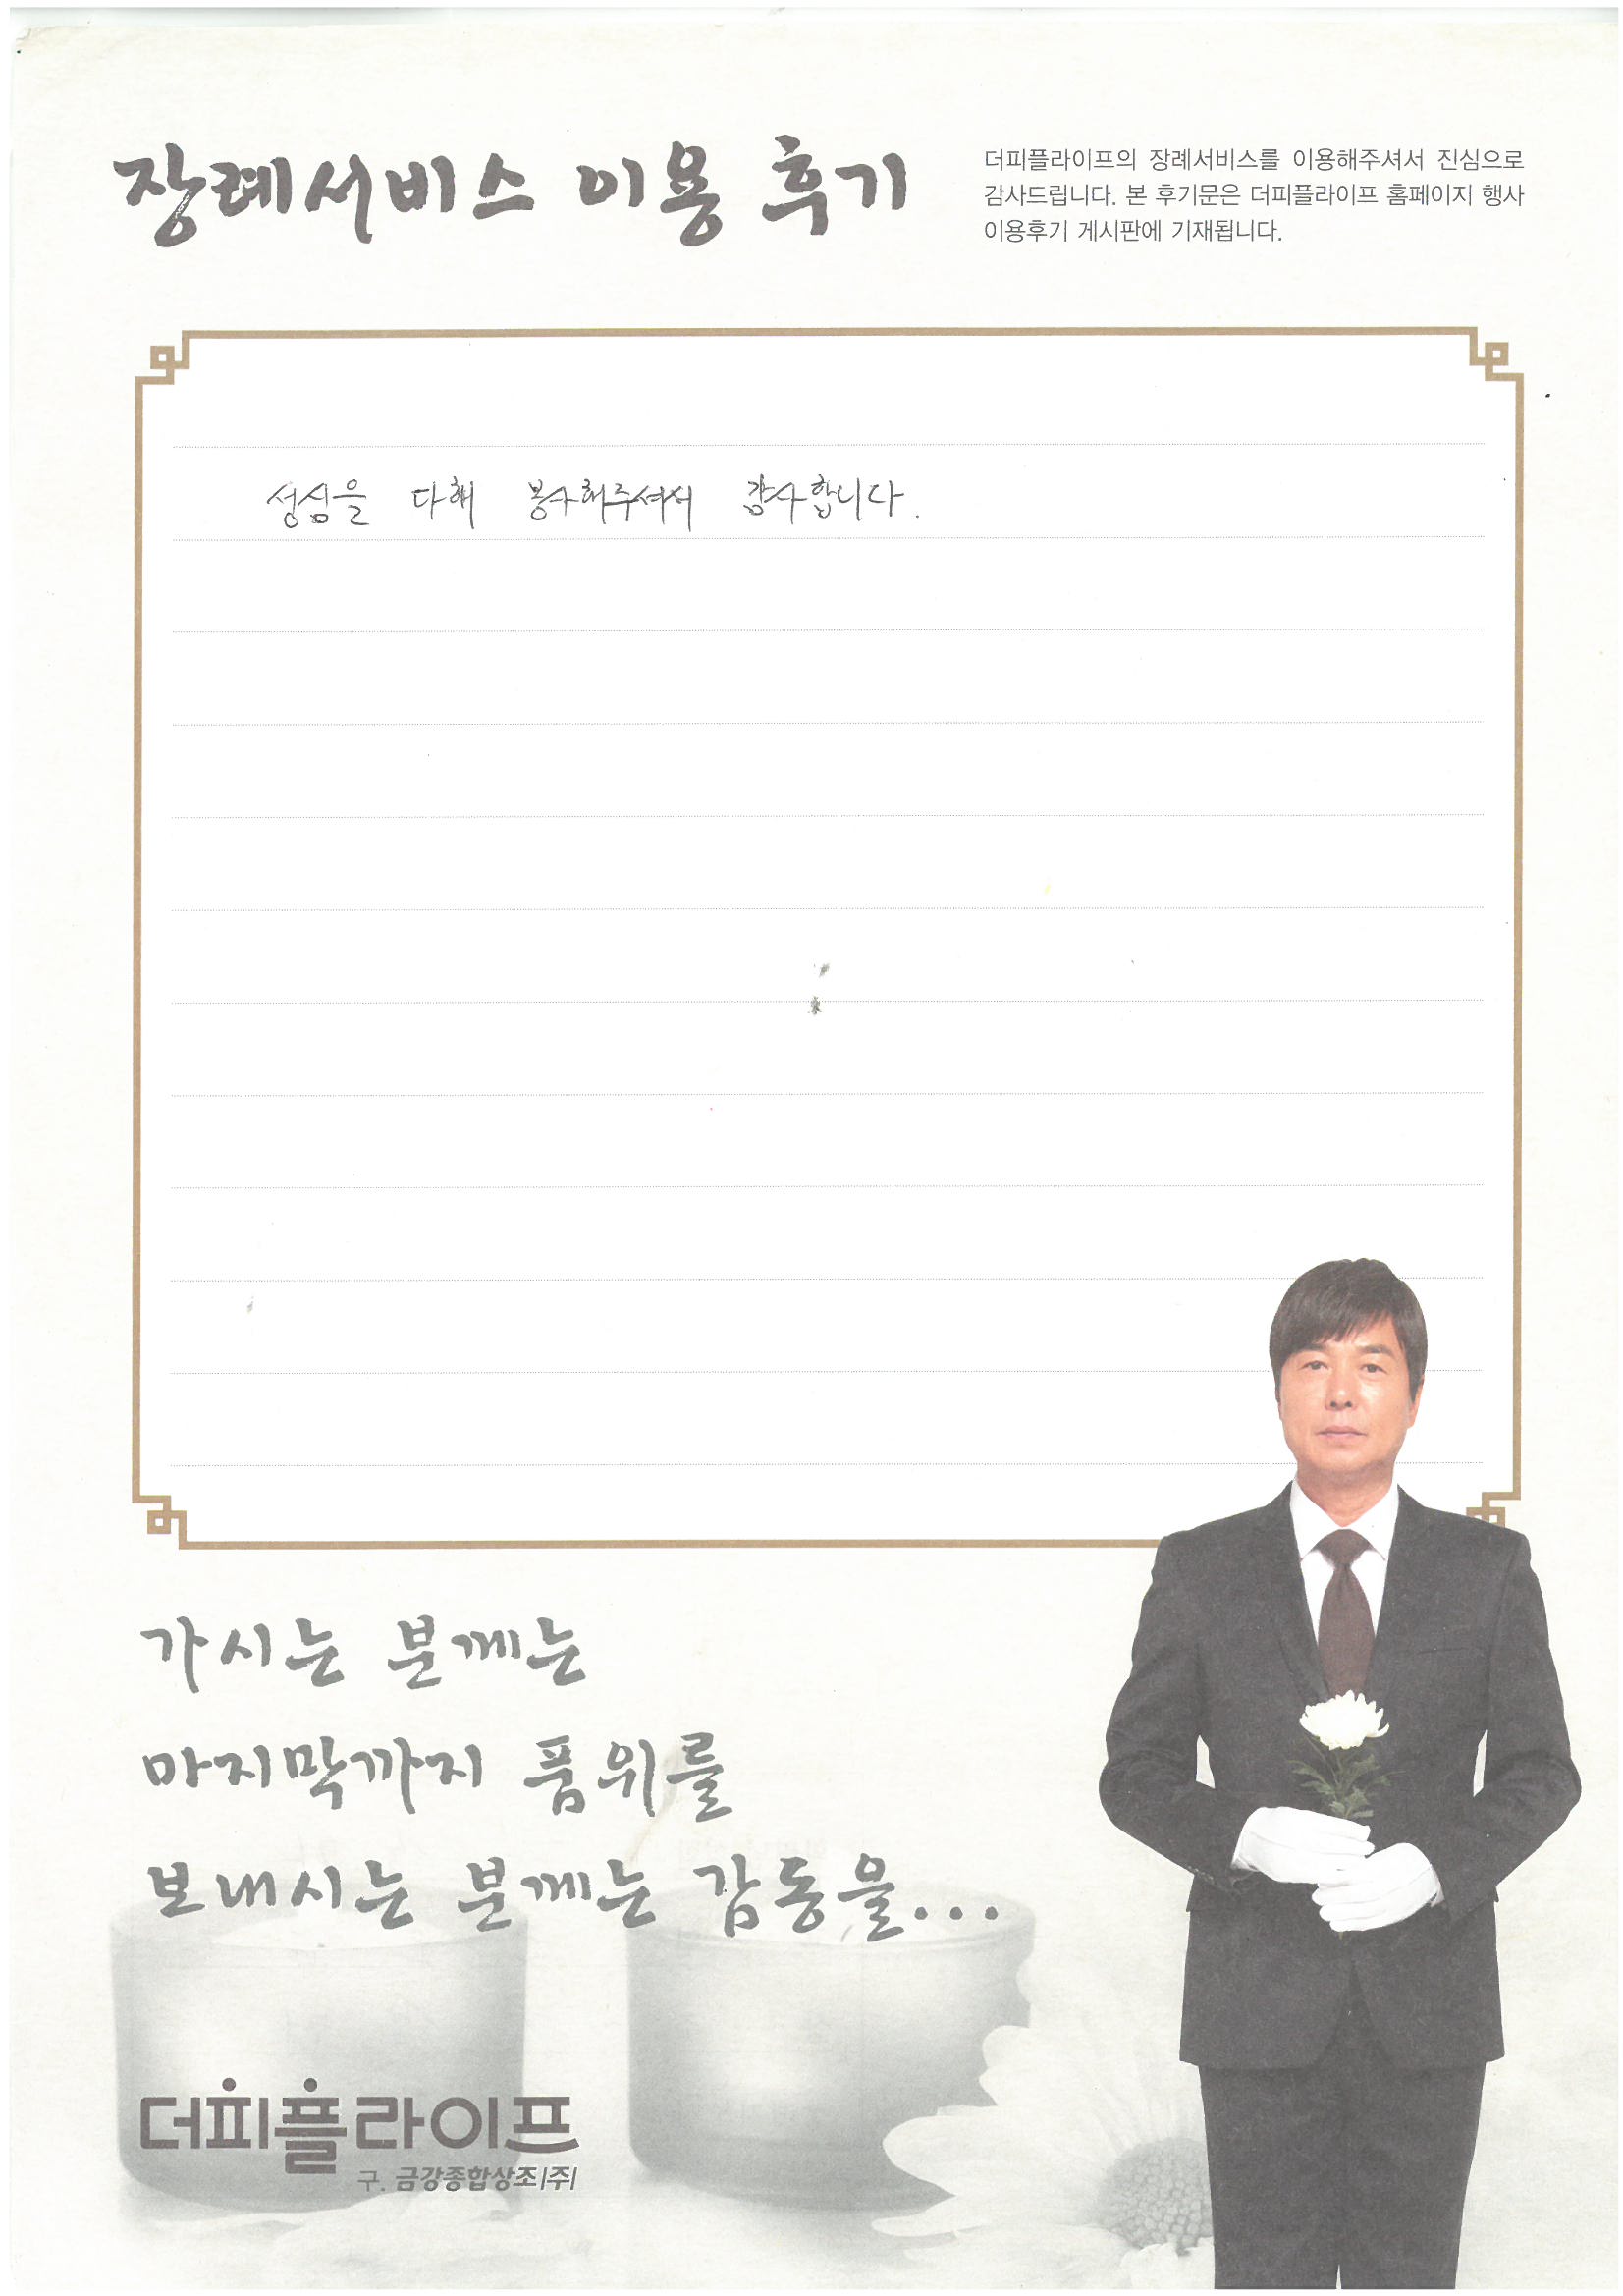 장례서비스 이용 후기
더피플라이프의 장례서비스를 이용해주셔서 진심으로
감사드립니다. 본 후기문은 더피플라이프 홈페이지 행사
이용후기 게시판에 기재됩니다.
성심을 다해 봉사해주셔서 감사합니다.
가시는 분께는
마지막까지 품위를
보내시는 분께는 감동을...
더피플라이프
구. 금강종합상조(주)